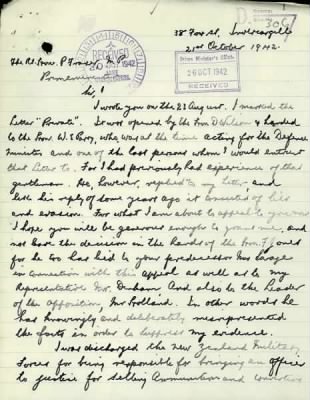 306
38 Fox St. Invercargill
21st October 1942.
RECEIVED
Prime Minister's Office.
26 OCT 1942
RECEIVED
The Rt. Hon. P. Fraser M.P.
Prime Minister
Sir,
I wrote you on the 23 August. I marked the
letter "Private". It was opened by the Hon. D Wilson & handed
to the Hon. W. E. Parry, who was at the time acting for the Defence
Minister and one of the last persons whom I would entrust
that letter to. For I had previously had experiences of that
gentleman. He, however, replied to my letter and
like his reply of some years ago it consisted of lies
and evasion. For what I am about to appeal to you now
I hope you will be generous enough to grant me, and
not leave the decision in the hands of the Hon. F Jones
for he too has lied to your predecessor Mr Savage
in connection with this appeal as well as to my
Representative Mr. Denham And also to the Leader
of the opposition Mr Holland. In other words he
has knowingly and deliberately misrepresented
the facts in order to suppress my evidence.
I was discharged the New Zealand Military
Forces for being responsible for bringing an officer
to justice for selling Ammunition and